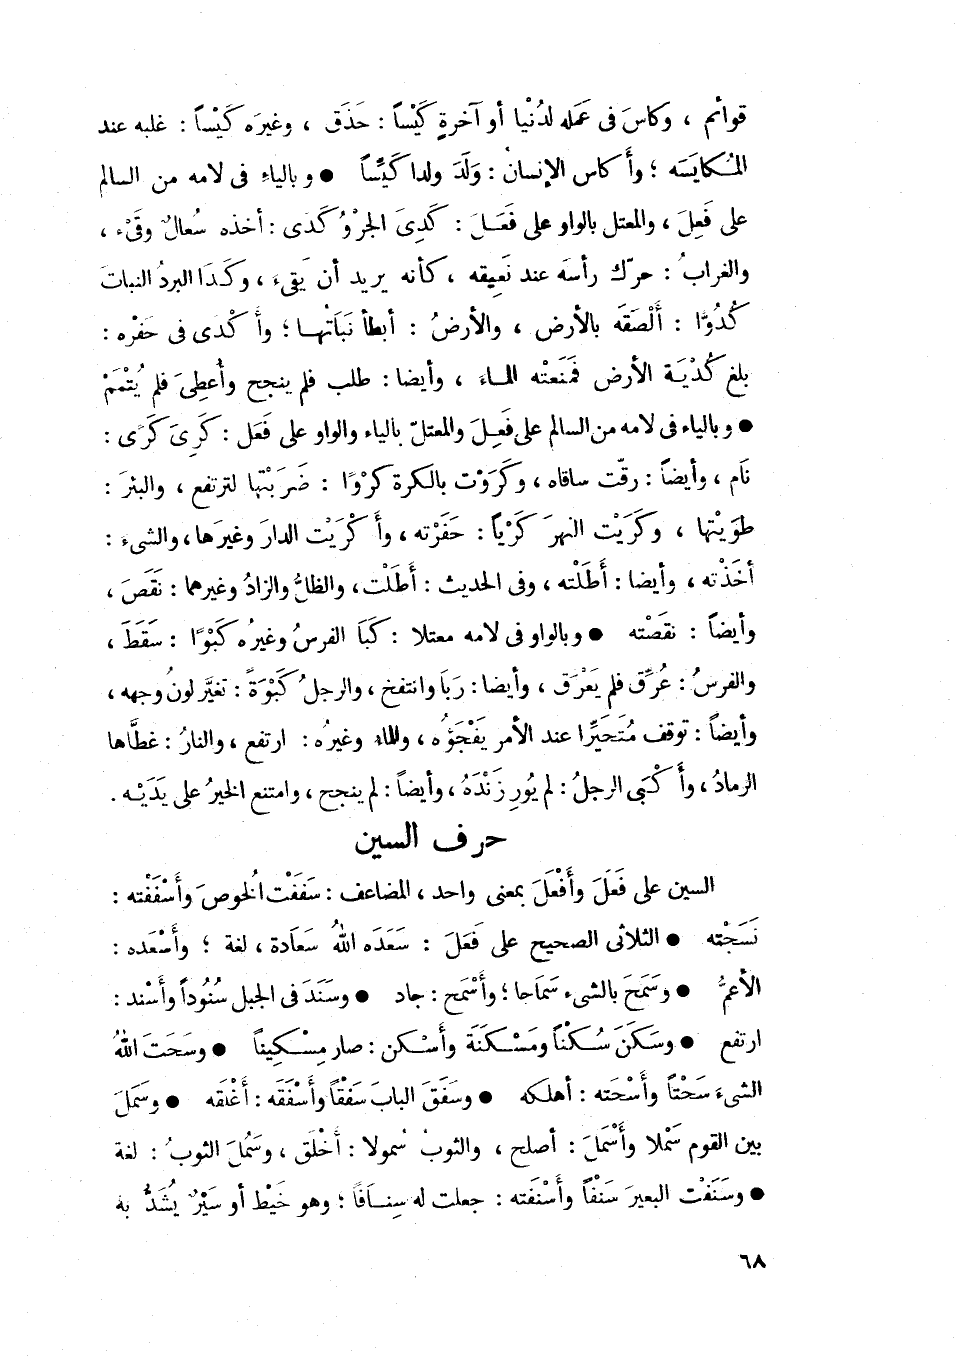 قوائم ، وكاسَ فى عَمَله لدُنْيا أو آخرةٍ كَيْساً : حَذَق ، وغيرَه كَيْساً : غلبه عند
المُكايَسَه ؛ وأَكاس الإنسانُ : وَلَدَ ولدا كَيِّساً ● وبالياءِ فى لامه من السالم
على فَعِلَ ، والمعتل بالواو على فَعَـلَ : كَدِىَ الجرْوُ كَدًى : أخذه سُعالٌ وقَىْء ،
والغرابُ : حرّك رأسَه عند نَعِيقه ، كأنه يريد أن يَقىءَ ، وكَدَا البردُ النباتَ
كُدُوًّا : أَلْصَقَه بالأرض ، والأرضُ : أبطأ نَبَاتُهـا ؛ وأَكْدى فى حَفْره :
بلغ كُدْيَـةَ الأرض فَمَنَعتْه المـاءَ ، وأيضا : طلب فلم ينجح وأُعطِىَ فلم يُتْمَمْ
● وبالياء فى لامه من السالم على فَعِـلَ والمعتلّ بالياء والواو على فَعَل : كَرِىَ كَرًى :
نَام ، وأيضاً : رقّت ساقاه ، وكَرَوْت بالكرة كرْوًا : ضَرَبْتها لترتفع ، والبئرَ :
طوَيْتها ، وكَرَيْت النهرَ كَرْياً : حَفَرْته ، وأَكْرَيْت الدارَ وغيرَها ، والشىءَ :
أخَذْته ، وأيضا : أَطَلْته ، وفى الحديث : أَطَلْت ، والظلُّ والزادُ وغيرهما : نَقَصَ ،
وأيضاً : نقَصْته ● وبالواو فى لامه معتلا : كَبَا الفرسُ وغيرُه كَبْوًا : سَقَطَ ،
والفرسُ : عُرِّق فلم يَعْرَق ، وأيضا : رَبَا وانتفخ ، والرجلُ كَبْوَةً : تغيَّر لونُ وجهه ،
وأيضاً : توقف مُتَحَيِّرا عند الأمر يَفْجَؤُه ، والماء وغيرُه : ارتفع ، والنارُ : غطَّاها
الرمادُ ، وأَكْبَى الرجلُ : لم يُورِ زَنْدَهُ ، وأيضاً : لم ينجح ، وامتنع الخيرُ على يَدَيْـه .
حرف السين
السين على فَعَلَ وأَفْعَلَ بمعنى واحد ، المضاعف : سَفَفْت الخوصَ وأَسْفَفْته :
نَسَجْته ● الثلاثى الصحيح على فَعَلَ : سَعَدَه اللهُ سَعَادة ، لغة ؛ وأَسْعَده :
الأعمُّ ● وسَمَحَ بالشىء سَمَاحا ؛ وأَسْمَح : جاد ● وسَنَدَ فى الجبل سُنُوداً وأَسْند :
ارتفع ● وسَـكَنَ سُـكْناً ومَسْـكَنَة وأَسْـكن : صار مِسْـكِيناً ● وسَحَتَ اللهُ
الشىءَ سَحْتاً وأَسْحَته : أهلكه ● وسَفَقَ البابَ سَفْقاً وأَسْفَقَه : أَغْلَقه ● وسَمَلَ
بين القوم سَمْلا وأَسْمَلَ : أصلح ، والثوبُ سُمولا : أخْلَق ، وسَمُلَ الثوبُ : لغة
● وسَنَفْت البعيرَ سَنْفاً وأَسْنَفته : جعلت له سِنـافاً ؛ وهو خَيْط أو سَيْرٌ يُشَدُّ به
٦٨